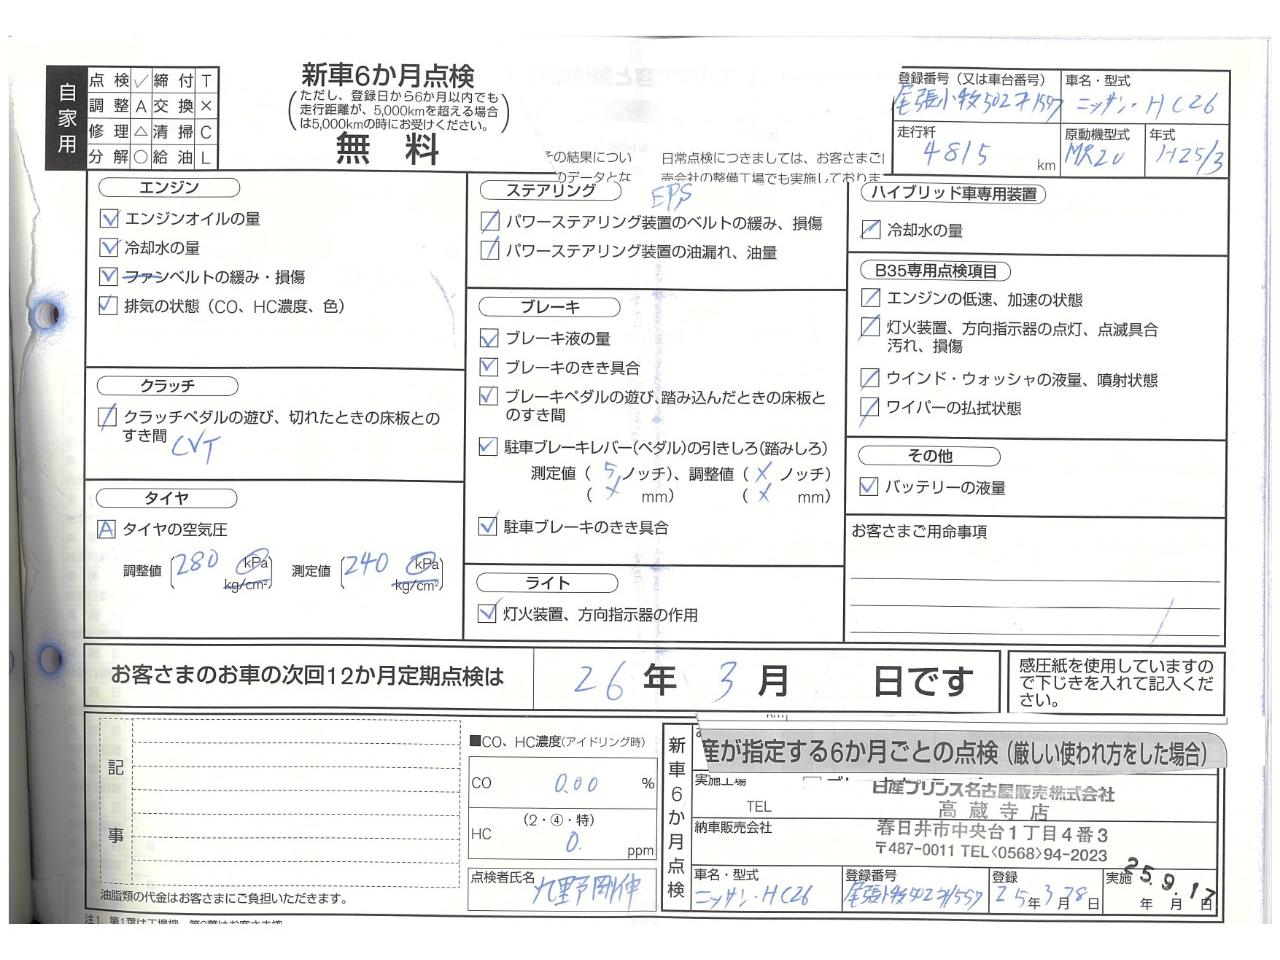 自家用
点検 ✓ 締付 T
調整 A 交換 ×
修理 △ 清掃 C
分解 ○ 給油 L
新車6か月点検
(ただし、登録日から6か月以内でも
走行距離が、5,000kmを超える場合
は5,000kmの時にお受けください。)
無 料
その結果につい
のデータとな
日常点検につきましては、お客さまご
売会社の整備工場でも実施しておりま
登録番号（又は車台番号）
尾張小牧502
車名・型式
ニッサン・HC26
走行粁
4815 km
原動機型式
MR20
年式
H25/3
エンジン
エンジンオイルの量
冷却水の量
ファンベルトの緩み・損傷
排気の状態（CO、HC濃度、色）
クラッチ
クラッチペダルの遊び、切れたときの床板との
すき間
CVT
タイヤ
A タイヤの空気圧
調整値 (280 kPa kg/cm²) 測定値 (240 kPa kg/cm²)
ステアリング
EPS
パワーステアリング装置のベルトの緩み、損傷
パワーステアリング装置の油漏れ、油量
ブレーキ
ブレーキ液の量
ブレーキのきき具合
ブレーキペダルの遊び、踏み込んだときの床板と
のすき間
駐車ブレーキレバー(ペダル)の引きしろ(踏みしろ)
測定値 ( 5 ノッチ)、調整値 ( × ノッチ)
( × mm) ( × mm)
駐車ブレーキのきき具合
ライト
灯火装置、方向指示器の作用
ハイブリッド車専用装置
冷却水の量
B35専用点検項目
エンジンの低速、加速の状態
灯火装置、方向指示器の点灯、点滅具合
汚れ、損傷
ウインド・ウォッシャの液量、噴射状態
ワイパーの払拭状態
その他
バッテリーの液量
お客さまご用命事項
お客さまのお車の次回12か月定期点検は 26 年 3 月 日です
感圧紙を使用していますの
で下じきを入れて記入くだ
さい。
記事
油脂類の代金はお客さまにご負担いただきます。
■CO、HC濃度(アイドリング時)
CO 0.00 %
HC (2・④・特)
0. ppm
点検者氏名
新車6か月点検
産が指定する6か月ごとの点検（厳しい使われ方をした場合）
実施工場
TEL
日産プリンス名古屋販売株式会社
高蔵寺店
納車販売会社
春日井市中央台1丁目4番3
〒487-0011 TEL<0568>94-2023
車名・型式
ニッサン・HC26
登録番号
尾張小牧502
登録
25年3月28日
実施
25.9.17
年 月 日